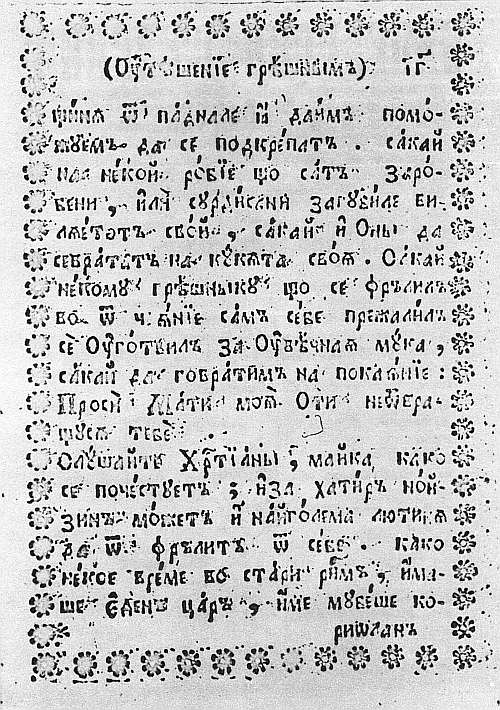 (Оу҆тѣшенїе грѣшнымъ) г҃і
щїнꙗ ѿ паднале и҆ даимъ помо-
жꙋемъ да се подкрепатъ . сакай
на некой робїе що сатъ заро-
бени , или сꙋрдисани загꙋбиле ви-
лаетотъ свой , сакай и҆ Оны да
себрататъ на кꙋкята своѧ . Сакай
некомꙋ грѣшникꙋ що се фрълилъ
во ѿ чаѧнїе самъ себе прежалилъ
се Оу҆готвилъ за Оу҆вѣчнаѧ мꙋка ,
сакай да говратимъ на покаѧнїе :
Проси Мати моѧ̀ Оти неѿвра-
щꙋсѧ тебе .
Слꙋшайте Хр҃тїаны ; майка како
се почестꙋетъ ; иза хатиръ ной-
зинъможетъ и҆ найголема лютинѧ
да ѿ фрълитъ ѿ себе . како
некое време во стари римъ , има-
ше Єденъ царъ , име мꙋбеше ко-
риѡланъ